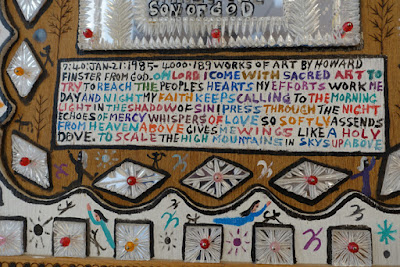 SON OF GOD
7:40. JAN-21-1985- 4000-189 WORKS OF ART BY HOWARD
FINSTER FROM GOD. OH LORD I COME WITH SACRED ART TO
TRY TO REACH THE PEOPLES HEARTS MY EFFORTS WORK ME
DAY AND NIGHT MY FAITH KEEPS CALLING TO THE MORNING
LIGHT IN THE SHADOW OF SIN I PRESS THROUGH THE NIGHT
ECHOES OF MERCY WHISPERS OF LOVE SO SOFTLY ASSENDS
FROM HEAVEN ABOVE GIVES ME WINGS LIKE A HOLY
DOVE. TO SCALE THE HIGH MOUNTAINS IN SKYS UP ABOVE